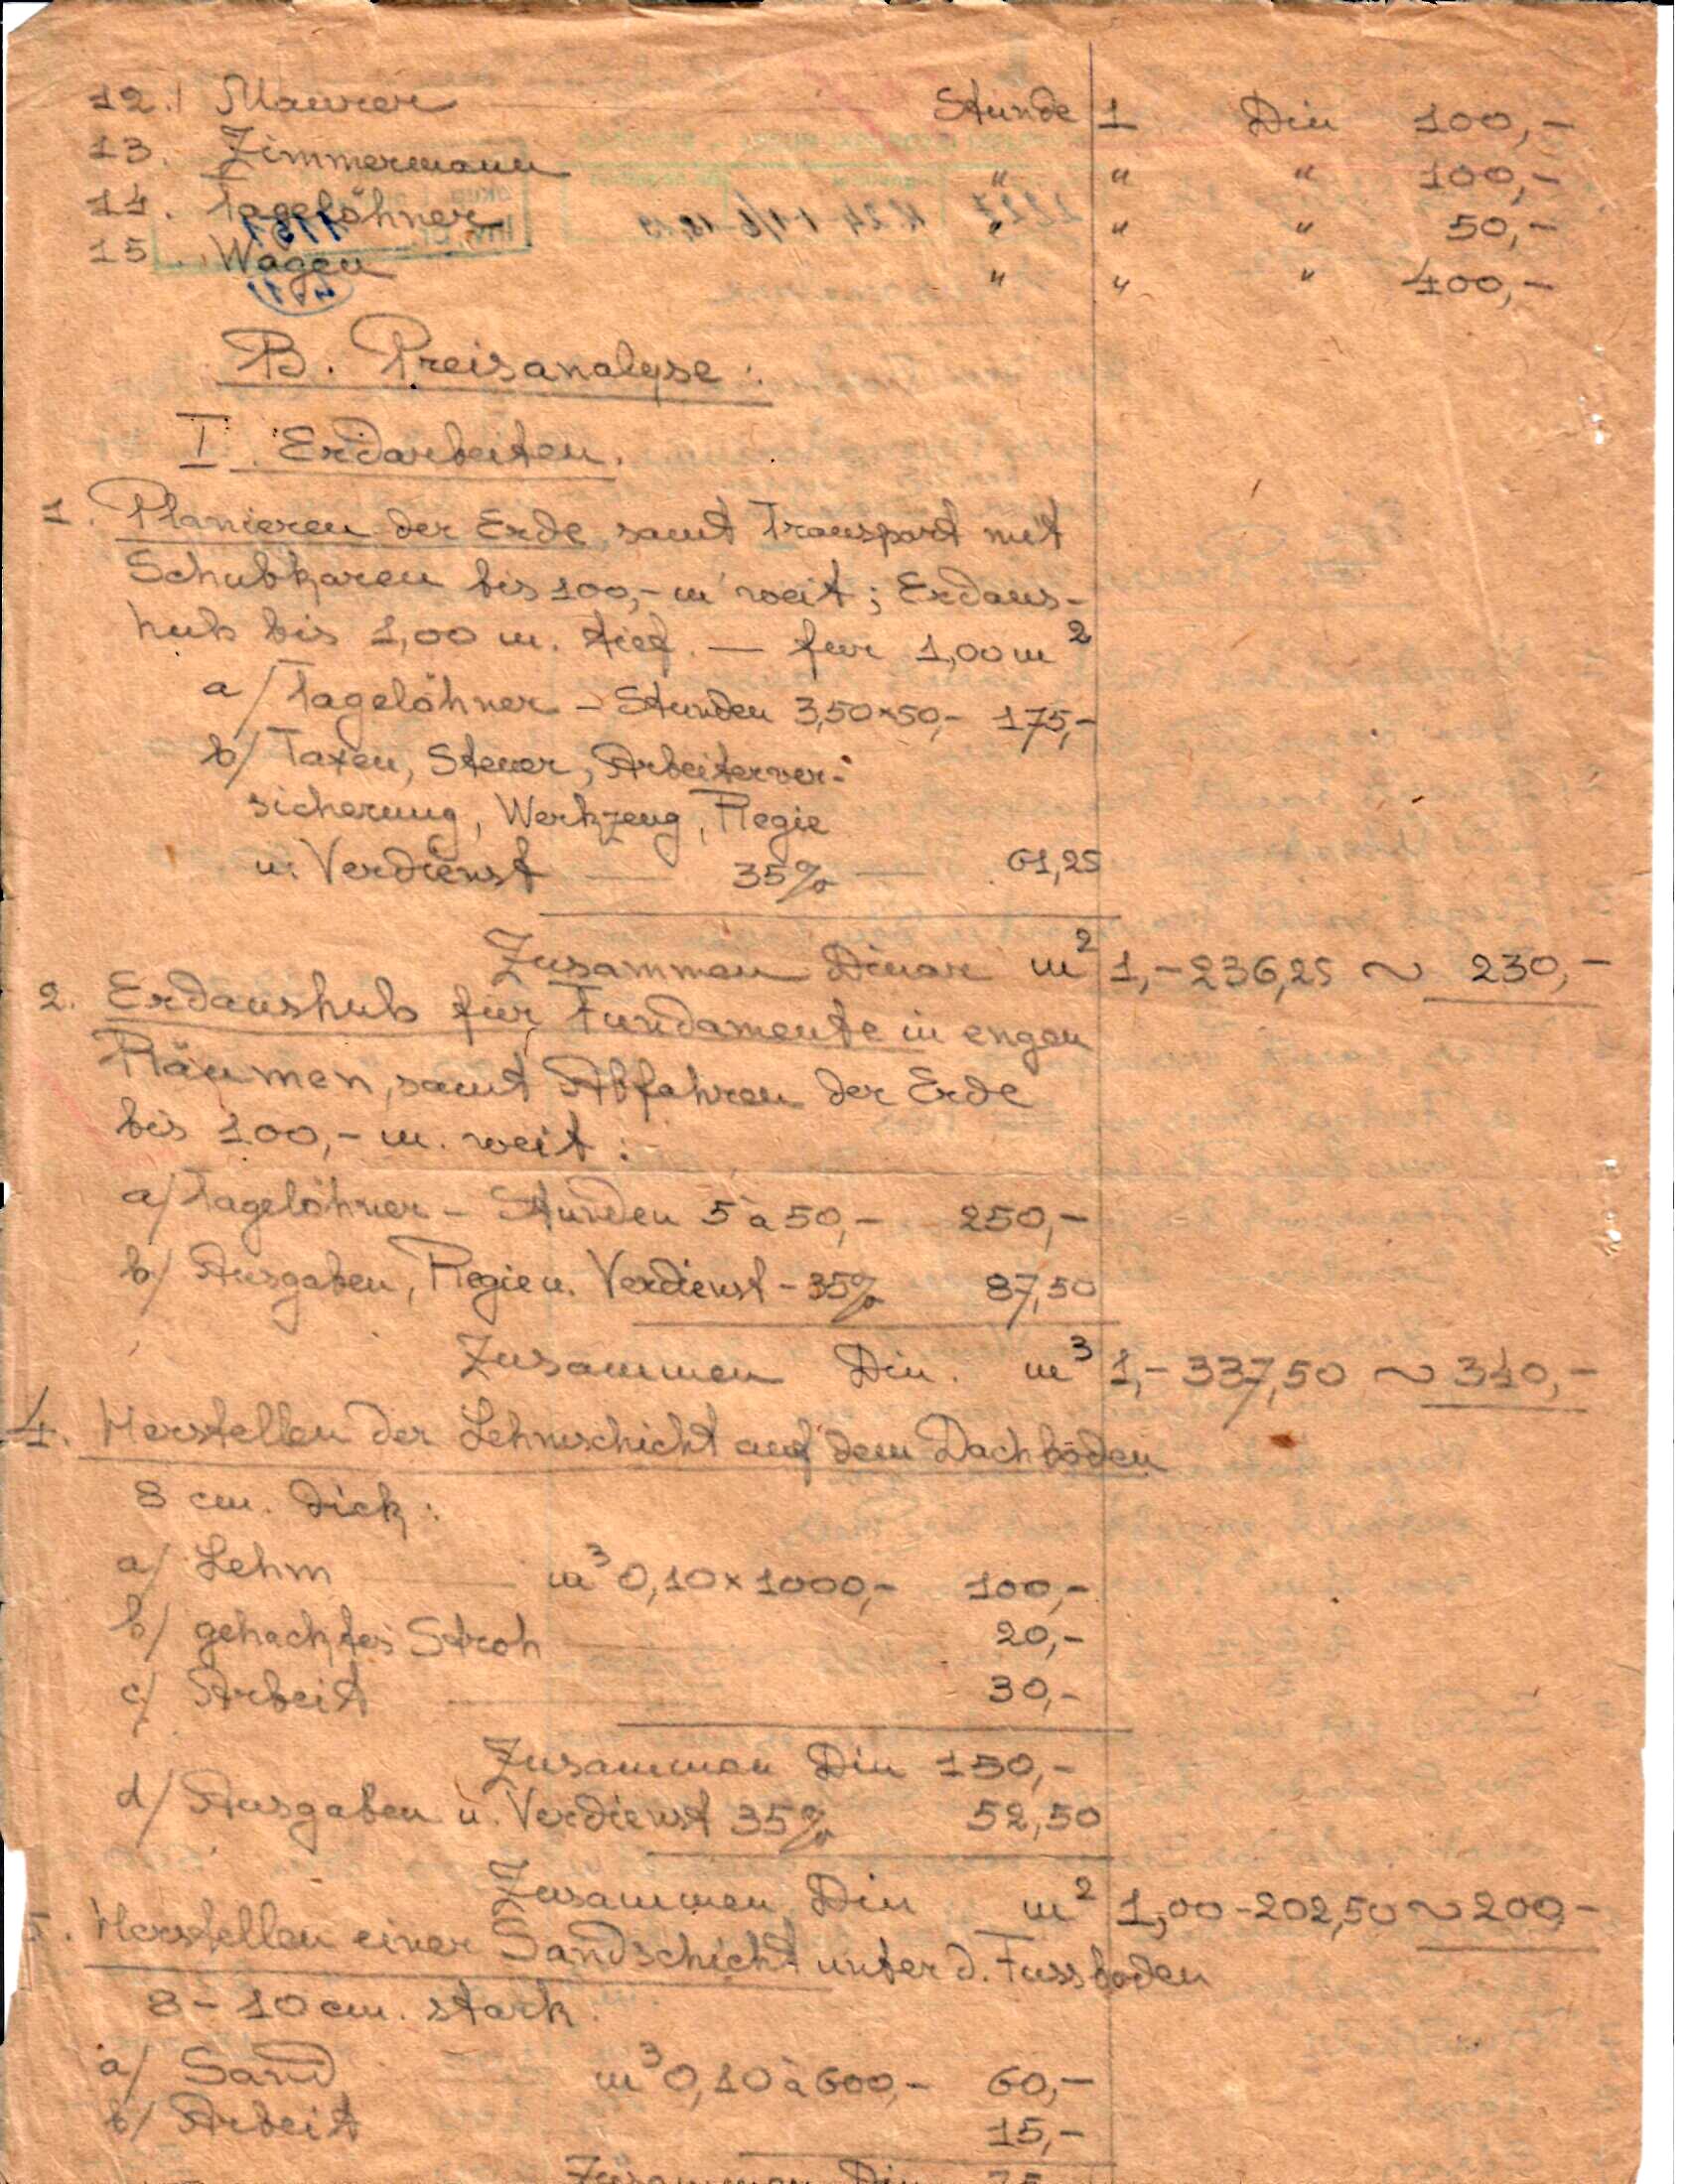 12. Maurer Stunde 1 Din 100,-
13. Zimmermann " " " 100,-
14. Tagelöhner " " " 50,-
15. Wagen " " " 400,-
B. Preisanalyse:
I. Erdarbeiten.
1. Planieren der Erde samt Transport mit
Schubkaren bis 100,- m weit; Erdaus-
hub bis 1,00 m. tief. — fur 1,00 m²
a/ Tagelöhner - Stunden 3,50×50,- 175,-
b/ Taxen, Steuer, Arbeiterver-
sicherung, Werkzeug, Regie
u. Verdienst — 35% — 61,25
Zusammen Dinar m² 1,- 236,25 ~ 230,-
2. Erdaushub fur Fundamente in engen
Räumen, samt Abfahren der Erde
bis 100,- m. weit:
a/ Tagelöhner - Stunden 5 à 50,- 250,-
b/ Ausgaben, Regie u. Verdienst - 35% 87,50
Zusammen Din. m³ 1,- 337,50 ~ 340,-
4. Herstellen der Lehmschicht auf dem Dachböden
8 cm. dick:
a/ Lehm — m³ 0,10×1000,- 100,-
b/ gehacktes Stroh — 20,-
c/ Arbeit — 30,-
Zusammen Din 150,-
d/ Ausgaben u. Verdienst 35% 52,50
Zusammen Din m² 1,00 - 202,50 ~ 200,-
5. Herstellen einer Sandschicht unter d. Fussboden
8 - 10 cm. stark.
a/ Sand m³ 0,10 à 600,- 60,-
b/ Arbeit 15,-
Zusammen Din 75,-